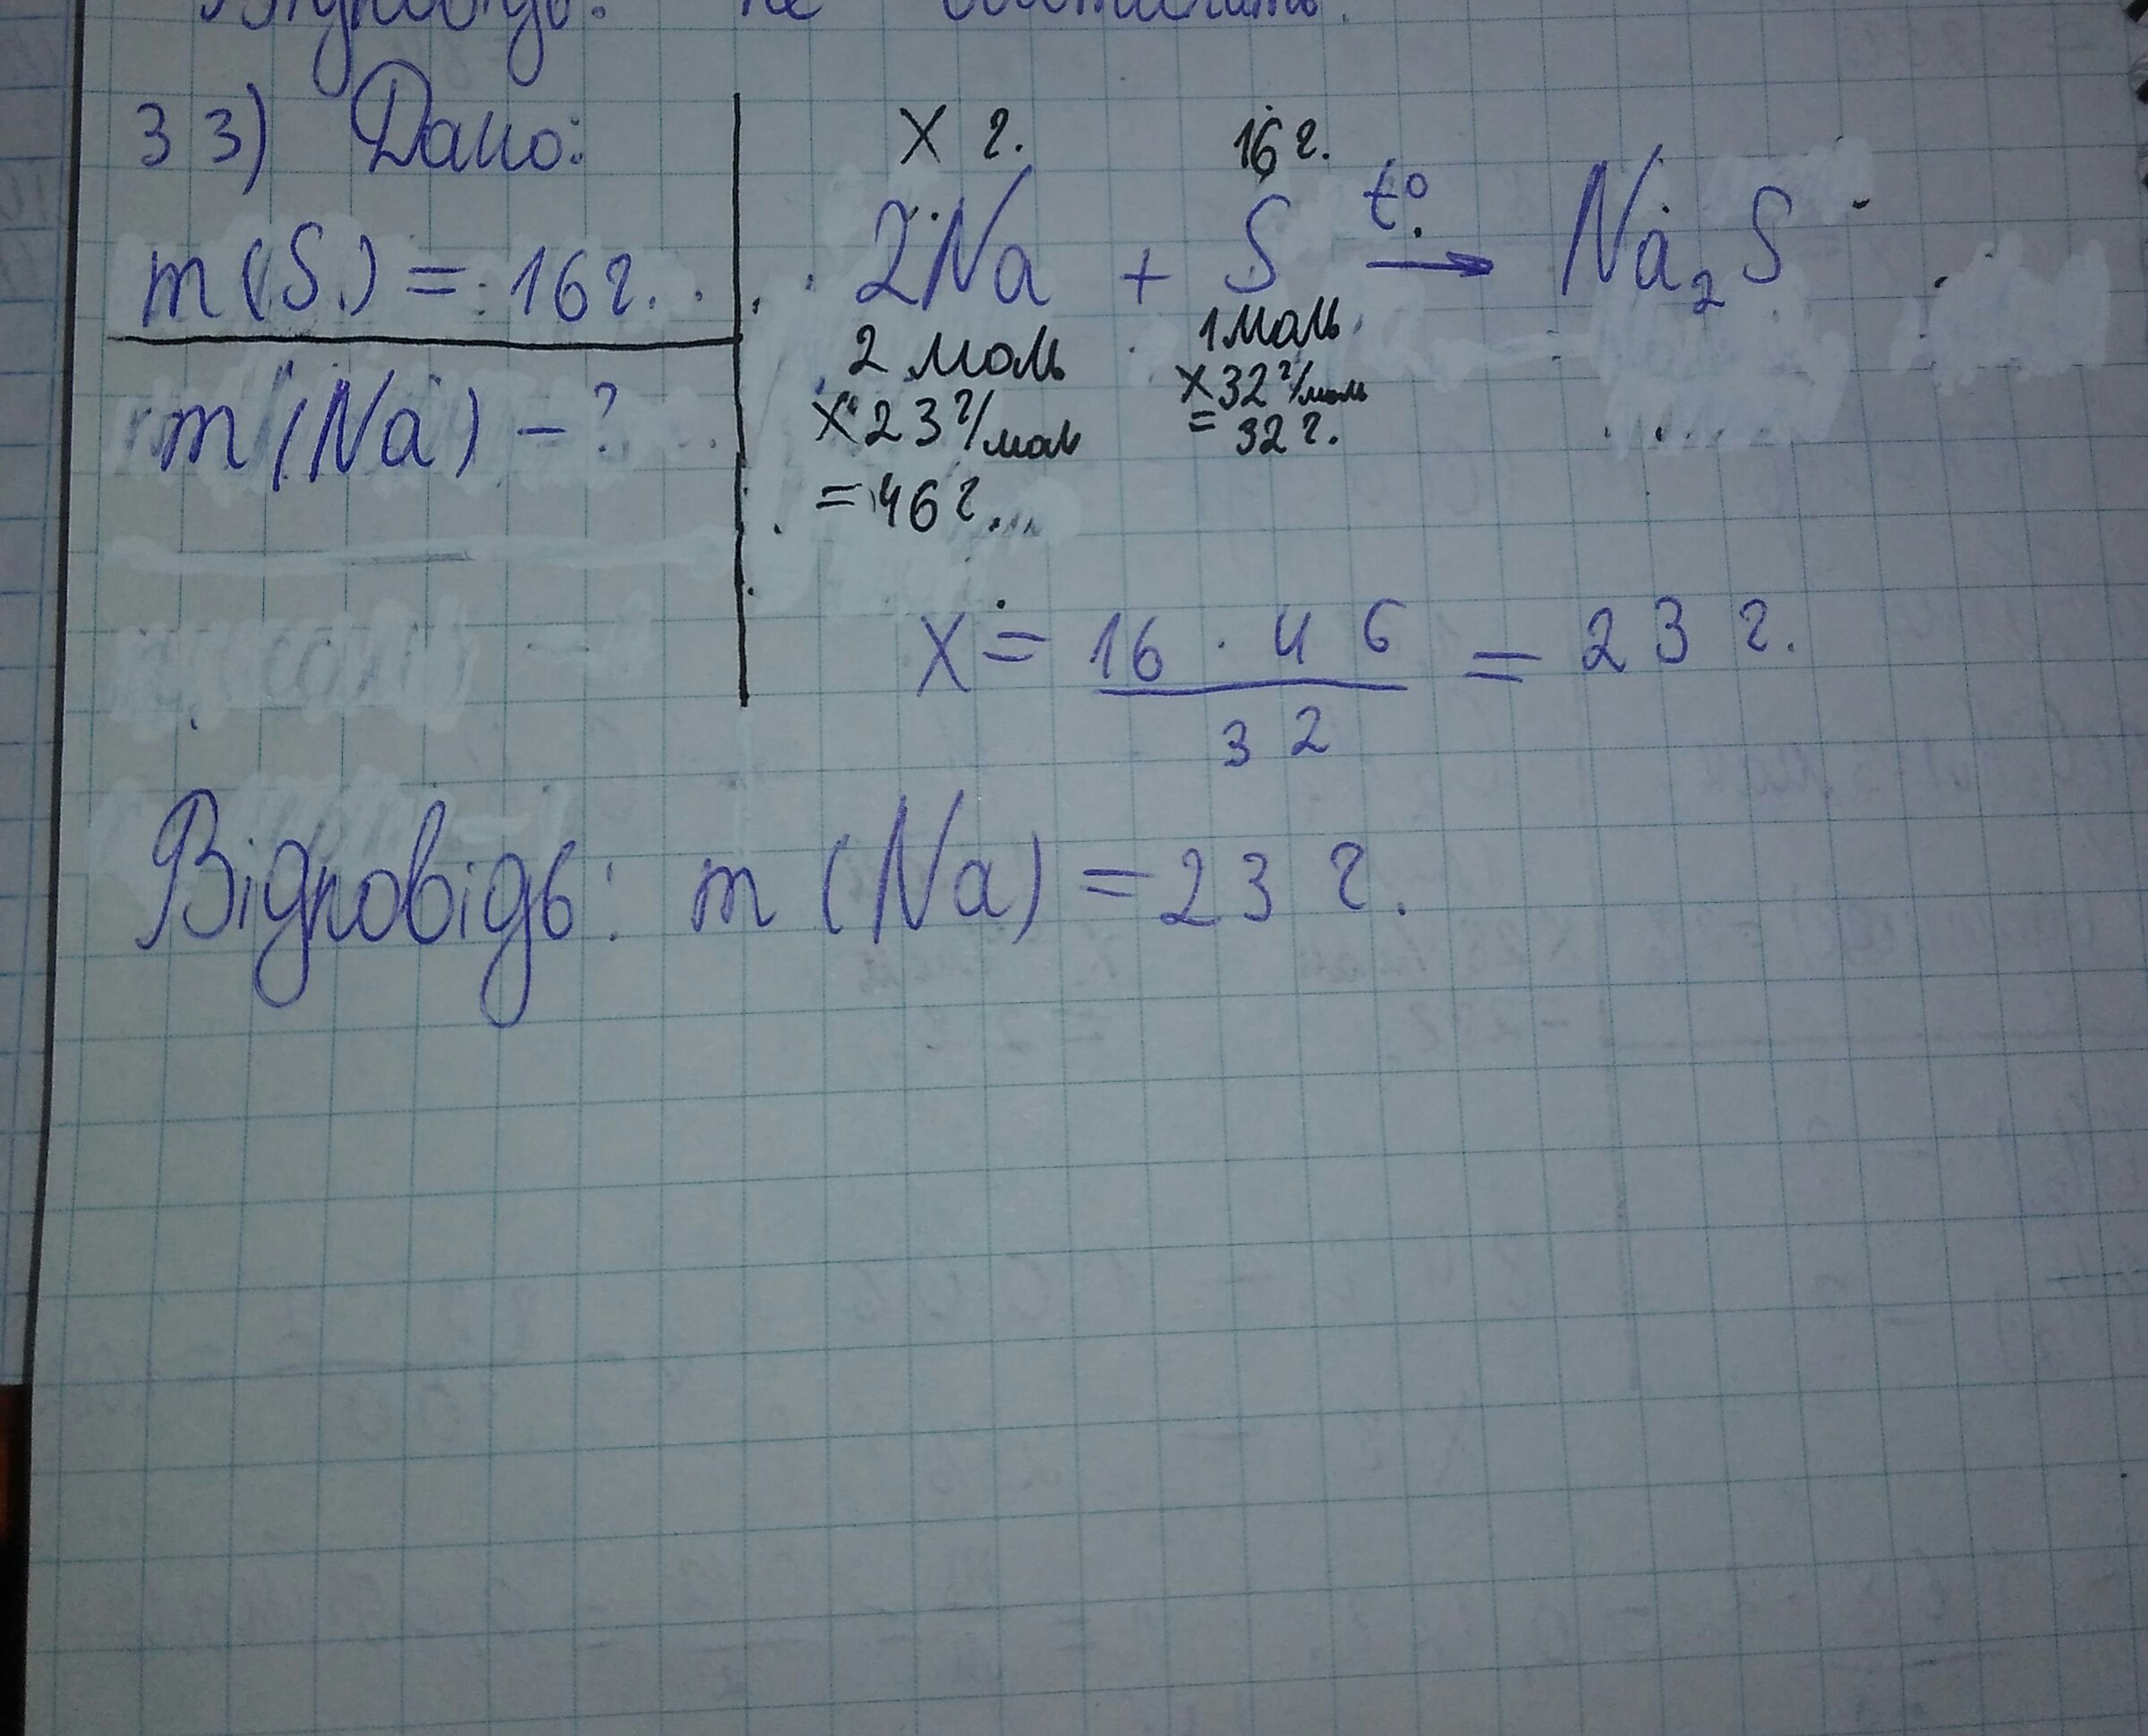 Відповідь: не
33) Дано:
m(S) = 16г.
m(Na) - ?
x г. 16г.
2Na + S t° → Na₂S
2 моль 1 моль
x 23 г/моль x 32 г/моль
= 46 г. = 32 г.
x = 16 · 46 / 32 = 23 г.
Відповідь: m (Na) = 23 г.